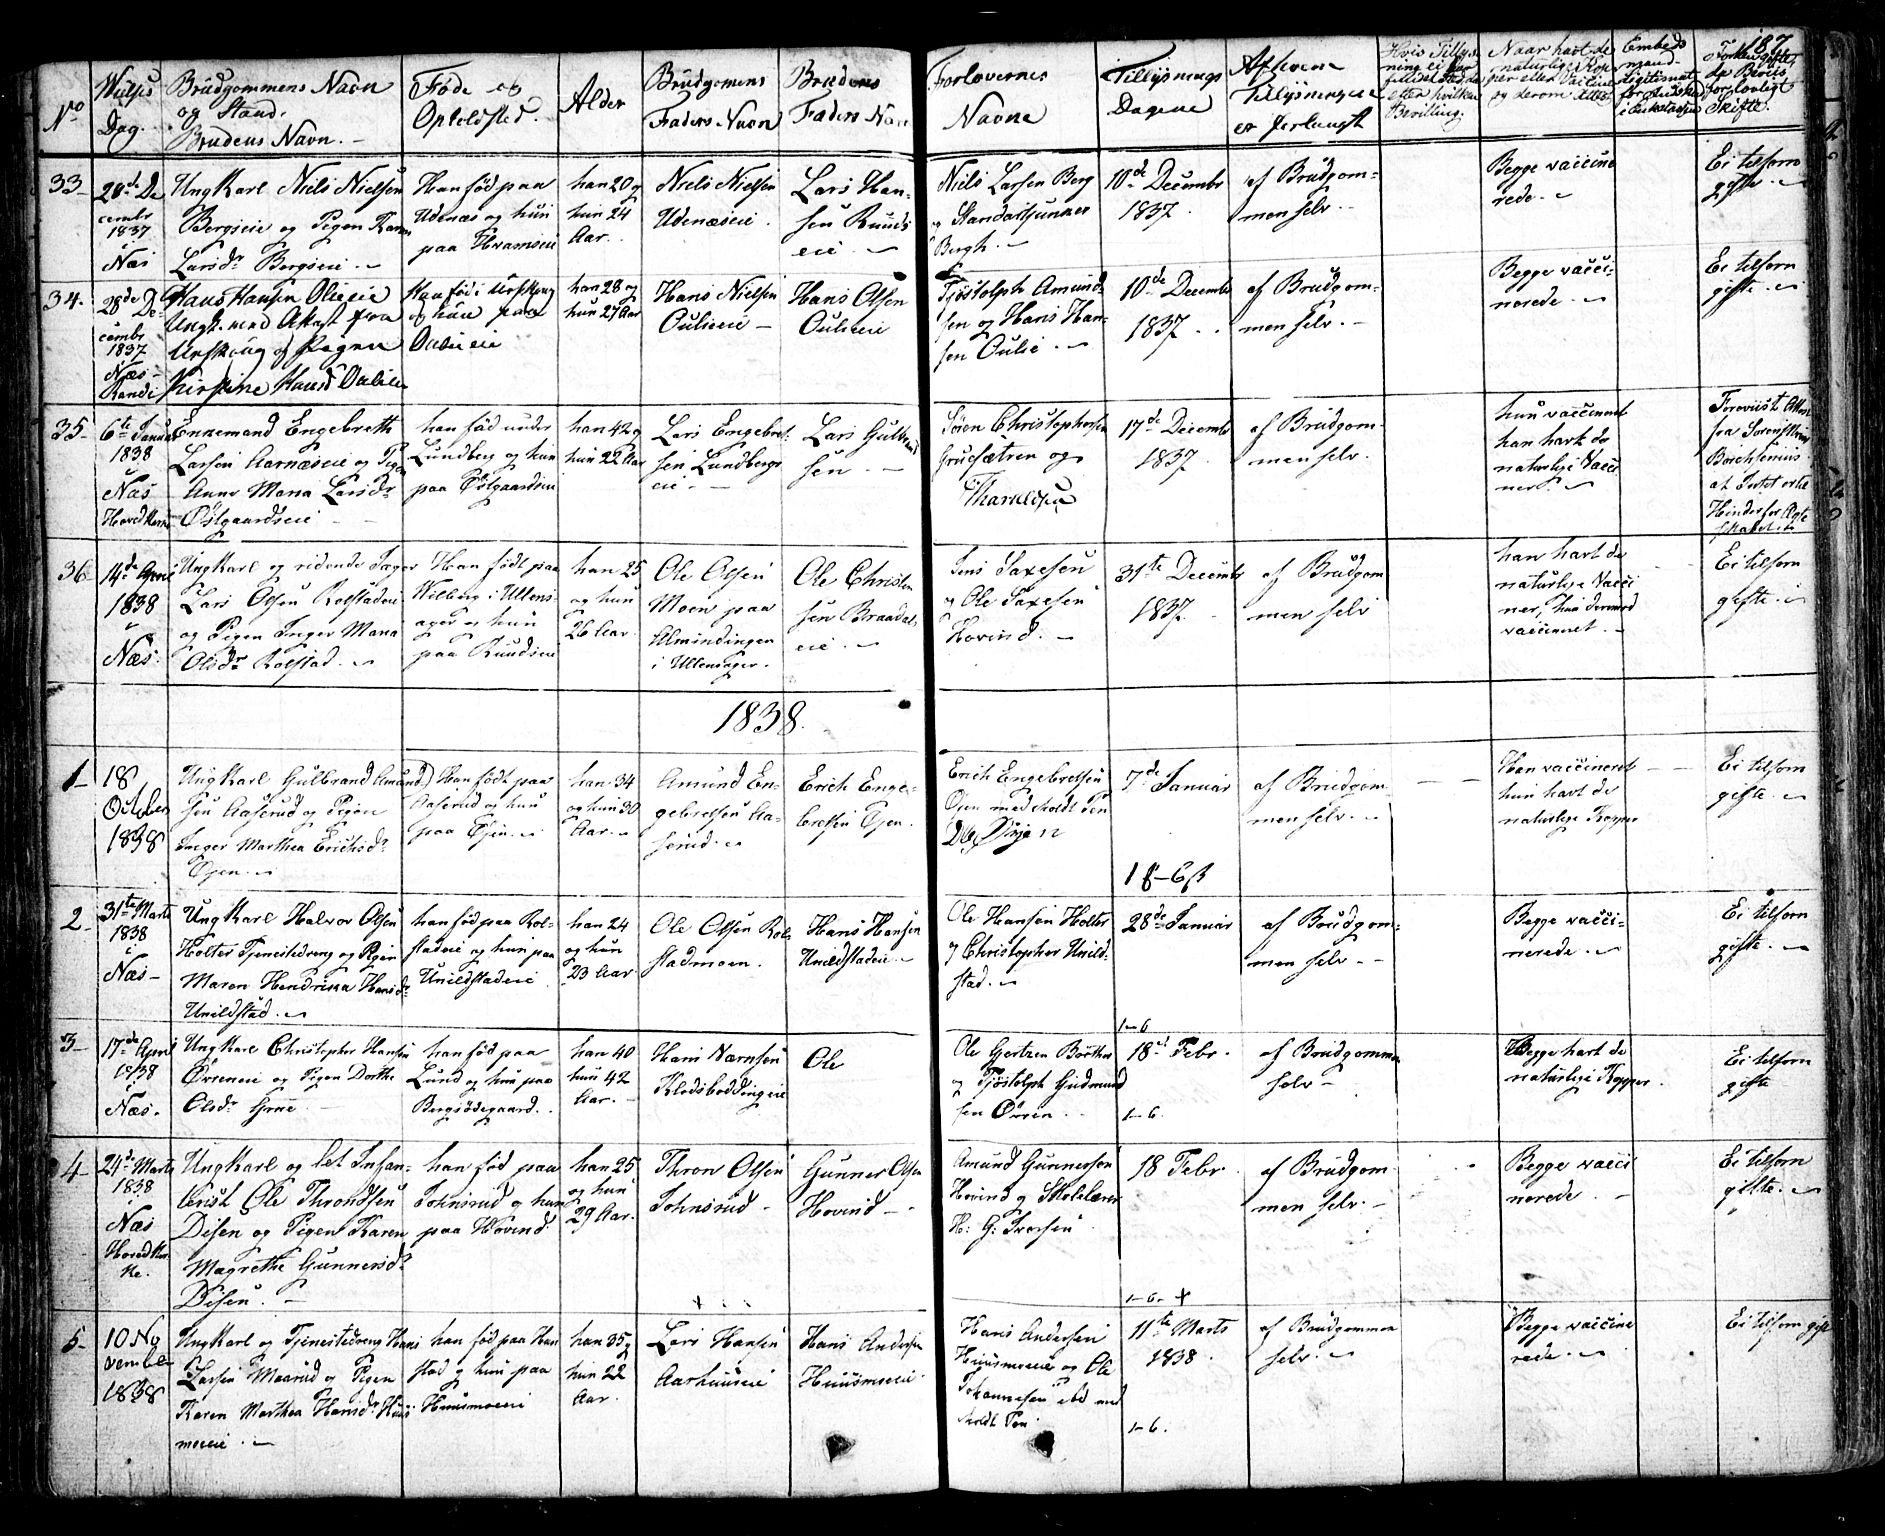 187
No
Vielses Dag.
Brudgommens Navn
og Stand.
Brudens Navn. –
Føde og
Opholdsted.
Alder
Brudgomens
Faders Navn
Brudens
Faders Navn
Forlovernes
Navne
Tillysnings
Dagene
Af hvem
Tillysningen
er forlangt
Hvis Tillys-
ning ei har
efter hvilken
Bevilling.
Naar havt de
naturlige Kop-
per eller
Embeds
33-
28de De
cembr
1837
Næs
Ungkarl Niels Nielsen
Bergseie og Pigen Karen
Larsdr Bergseie.
Han fød paa
Udenæs og hun
paa
han 20 og
hun 24
Aar.
Niels Nielsen
Udenæseie.
Lars Han-
sen Ruuds
eie.
Niels Larsen Berg
og Standartjunker
Bergh.
10de Decembr
1837.
af Brudgom-
men selv.
Begge vaccine
rede.
Ei tilforn
gifte.
34.
28de De-
cembr
1837
Næs
Hans Hansen Oulieeie
Ungk. med Attest fra
Urskoug og Pigen
Kirstine Hansdr
Han fød i Urskoug
og hun paa
Oulieeie
han 28 og
hun 27 Aar
Hans Nielsen
Oulieeie –
Hans Olsen
Oulieeie
Tjøstolph Amund-
sen og Hans Han-
sen Oulie.
10de Decembr
1837.
af Brudgom-
men selv.
Begge vacci-
nerede.
Ei tilforn
gifte.
35-
6te Januar
1838
Næs
Hovedkirke
Ennemand Engebreth
Larsen Aarnæseie og Pigen
Anne Maria Larsdr
Østgaardseie
han fød under
Lundberg og hun
paa Østgaardseie
han 42 og
hun 22 Aar
Lars Engebret-
sen Lundbergs
eie.
Lars Gulbrand
sen.
Søren Christophersen
Gruesætren og
Tharaldsen
17de Decembr
1837.
af Brudgom
men selv.
hun vaccineret
han havt de
naturlige Vacci
ner.
Foreviist Attest
fra Sorenskriver
Borchsenius
at Intet er til
Hinder for Ægte
skabet
36
14de April
1838
Næs.
Ungkarl og ridende Jæger
Lars Olsen Rolstadeie
og Pigen Inger Maria
Olsdr Rolstad.
Han født paa
Wilberg i Ullens-
ager og hun
paa Ruudseie
han 25
og hun
26 Aar.
Ole Olsen
Moen paa
Almindingen
i Ullensager.
Ole Christen
sen Braadals
eie.
Jens Saxesen
og Ole Saxesen
Hovind. –
31te Decembr
1837.
af Brudgom
men selv
han havt de
naturlige Vacci
ner, hun derimod
vaccineret.
Ei tilforn
gifte.
1838.
1-
18
October
1838
Ungkarl Gulbrand Amund-
sen Aaserud og Pigen
Inger Marthea Erichsdr
Øjen.
Han født paa
Aaserud og hun
paa Øjen.
han 34
og hun 30
Aar.
Amund En-
gebretsen Aa-
serud.
Erich Enge-
bretsen Øjen.
Erich Engebretsen
Øjen med holdt Pen
7de Januar
1 – 6 ß
af Brudgom-
men selv.
Han vaccineret
hun havt de
naturlige Kopper
Ei tilforn
gifte.
2-
31te Marts
1838
i
Næs –
Ungkarl Halvor Olsen
Holter Tjenestedreng og Pigen
Maren Hendrikka Hansdr
Unildstad.
han fød paa Rol-
stadeie og hun paa
Unildstadeie
han 24
og hun
23 Aar
Ole Olsen Rol-
stadmoen.
Hans Hansen
Unildstadeie.
Ole Hansen Holter
og Christopher Unild-
stad.
28de Januar
1–6
af Brudgom-
men selv.
Begge vacci-
nerede.
Ei tilforn
gifte.
3-
17de April
1838
i
Næs.
Ungkarl Christopher Hansen
Ørseneie og Pigen Dorthe
Olsdr
han fød paa
Lund og hun paa
Bergsødegaard.
han 40
hun 42
Aar.
Hans
Klodsboddingeie
Ole
Ole Gertzen
og Tjøstolph Gudmund
sen
18de Febr.
1–6.
af Brudgommen
selv –
Begge havt de
naturlige Kopper.
Ei tilforn
gifte.
4-
24de Marts
1838
i
Næs
Hovedkir-
ke.
Ungkarl og let Infan-
terist Ole Throndsen
Disen og Pigen Karen
Magrethe Gunnersdr
Disen.
han fød paa
Johnsrud og hun
paa Hovind.
han 25
og hun
29 Aar.
Thron Olsen
Johnsrud
Gunner Olsen
Hovind
Amund Gunnersen
Hovind og Skolelærer
H: G: Iversen
18 Febr.
1–6–
af Brudgom
men selv.
Begge vacci
nerede.
Ei tilforn
gifte.
5-
10 No
vember
1838
Ungkarl og Tjenestedreng Hans
Larsen Maarud og Pigen
Karen Marthea Hansdr Huus
moeeie.
han fød paa Han
stad og hun paa
Huusmoeeie
han 35 og
hun 22
Aar.
Lars Hansen
Aarhuuseie
Hans Andersen
Huusmoeeie
Hans Andersen
Huusmoeeie og Ole
Johannesen ibd med
holdt Pen.
11te Marts
1838.
1–6.
af Brudgommen
selv.
Begge vaccine
rede.
Ei tilforn gifte